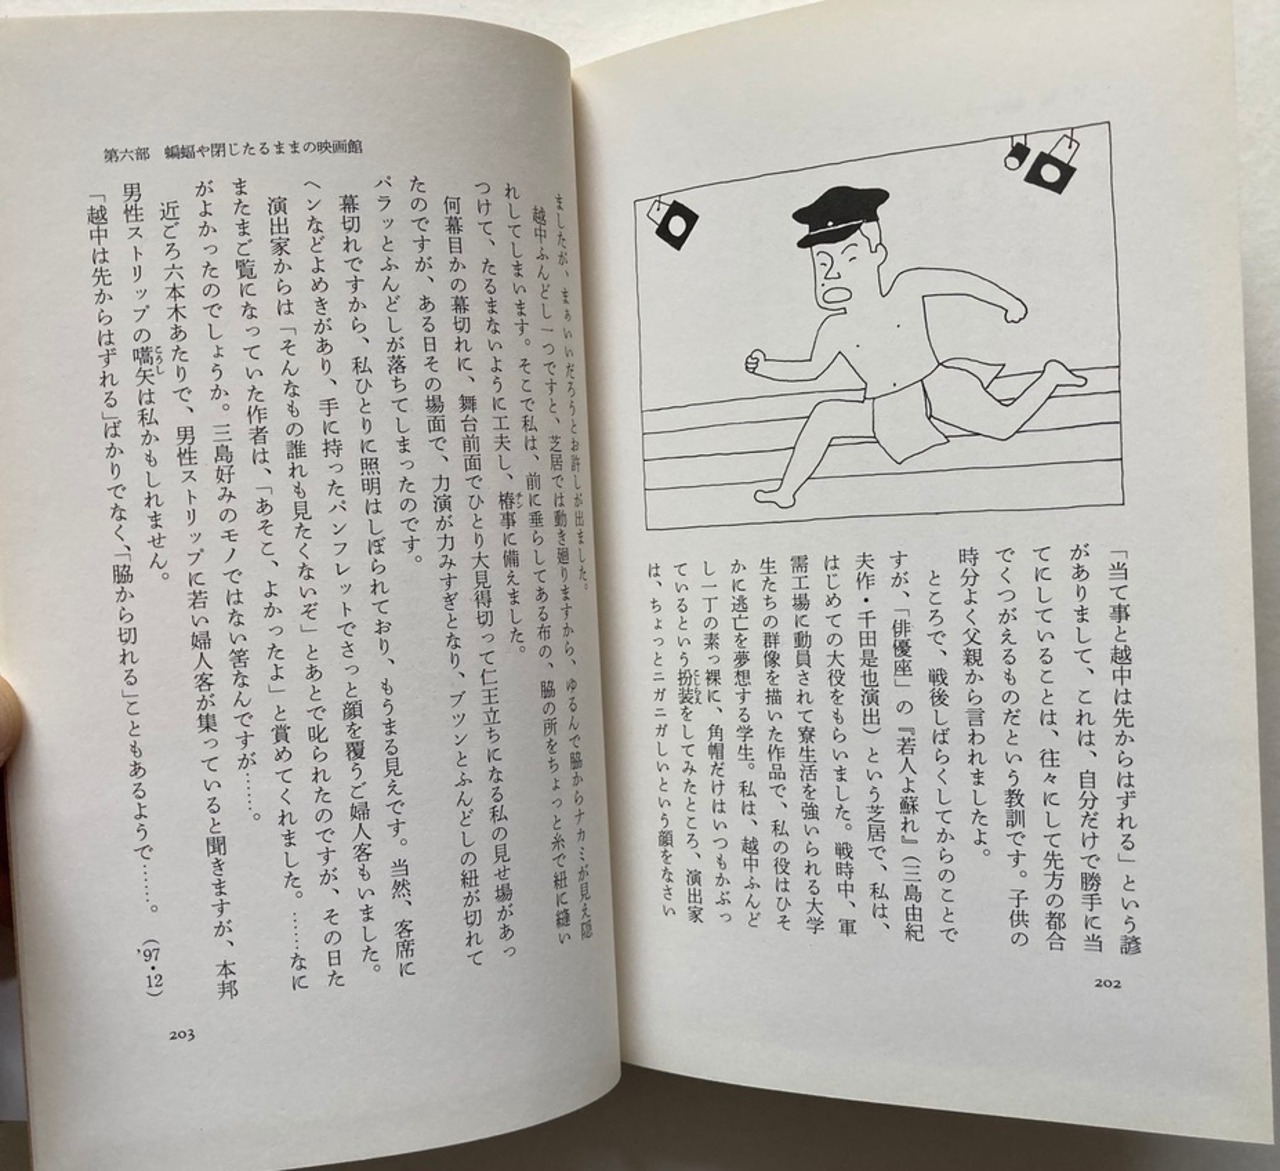 「当て事と越中は先からはずれる」という諺
がありまして、これは、自分だけで勝手に当
てにしていることは、往々にして先方の都合
でくつがえるものだという教訓です。子供の
時分よく父親から言われましたよ。
ところで、戦後しばらくしてからのことで
すが、「俳優座」の『若人よ蘇れ』(三島由紀
夫作・千田是也演出)という芝居で、私は、
はじめての大役をもらいました。戦時中、軍
需工場に動員されて寮生活を強いられる大学
生たちの群像を描いた作品で、私の役はひそ
かに逃亡を夢想する学生。私は、越中ふんど
し一丁の素っ裸に、角帽だけはいつもかぶっ
ているという扮装をしてみたところ、演出家
は、ちょっとニガニガしいという顔をなさい
202
第六部 蝙蝠や閉じたるままの映画館
ましたが、まぁいいだろうとお許しが出ました。
越中ふんどし一つですと、芝居では動き廻りますから、ゆるんで脇からナカミが見え隠
れしてしまいます。そこで私は、前に垂らしてある布の、脇の所をちょっと糸で紐に縫い
つけて、たるまないように工夫し、椿事に備えました。
チン
何幕目かの幕切れに、舞台前面でひとり大見得切って仁王立ちになる私の見せ場があっ
たのですが、ある日その場面で、力演が力みすぎとなり、ブツンとふんどしの紐が切れて
パラッとふんどしが落ちてしまったのです。
幕切れですから、私ひとりに照明はしぼられており、もうまる見えです。当然、客席に
ヘンなどよめきがあり、手に持ったパンフレットでさっと顔を覆うご婦人客もいました。
演出家からは「そんなもの誰れも見たくないぞ」とあとで叱られたのですが、その日た
またまご覧になっていた作者は、「あそこ、よかったよ」と賞めてくれました。……なに
がよかったのでしょうか。三島好みのモノではない筈なんですが……。
近ごろ六本木あたりで、男性ストリップに若い婦人客が集っていると聞きますが、本邦
男性ストリップの嚆矢は私かもしれません。
こうし
「越中は先からはずれる」ばかりでなく、「脇から切れる」こともあるようで……。
('97・12)
203